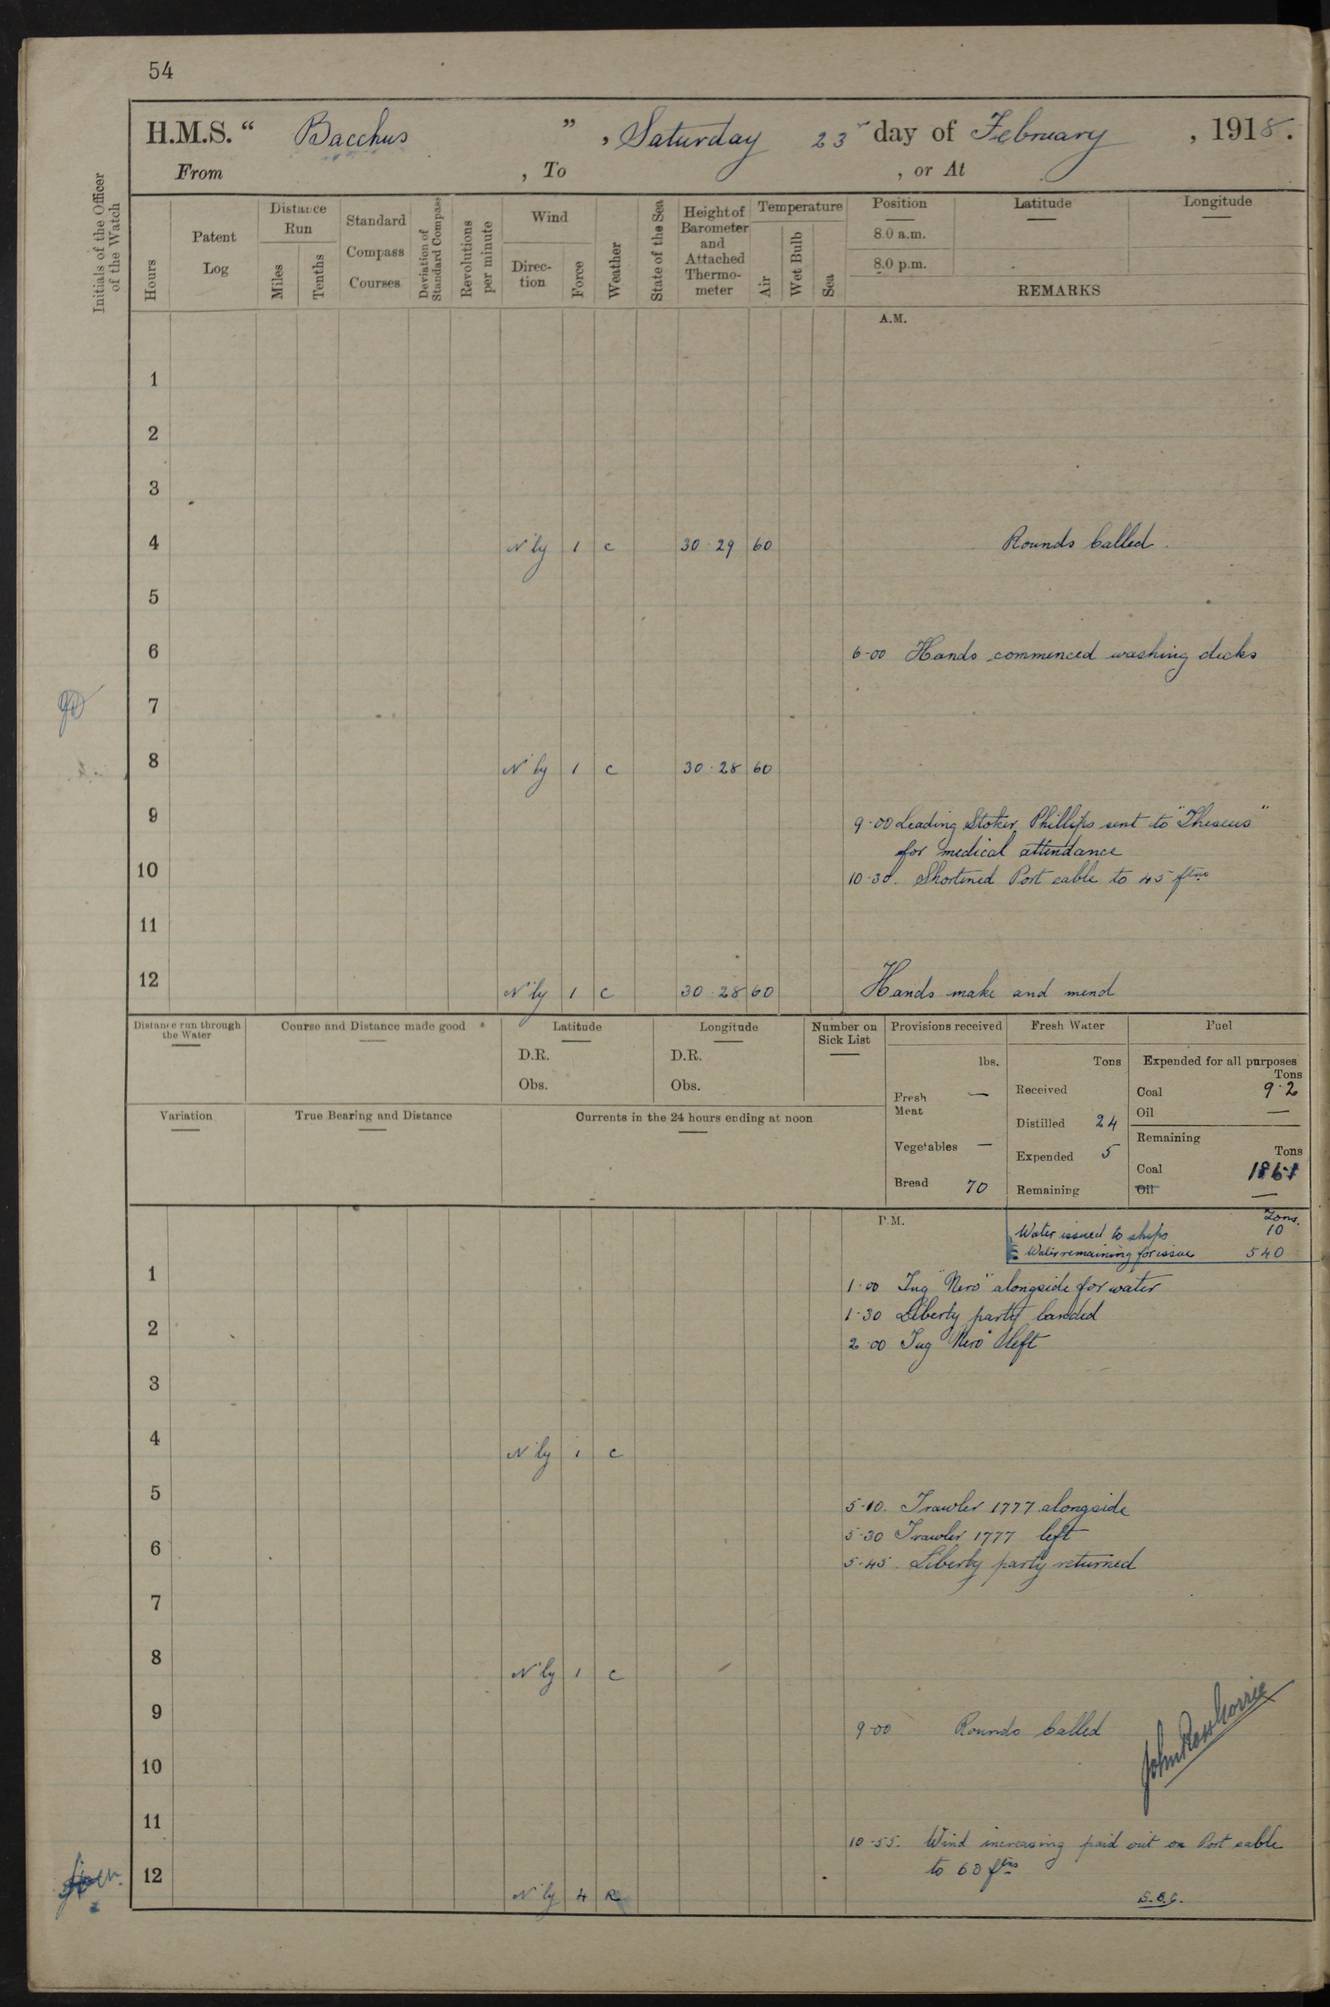 54
H.M.S. “ Bacchus ” , Saturday 23r day of February , 1918.
From , To , or At
Initials of the Officer of the Watch
Hours
Patent Log
Distance Run
Miles
Tenths
Standard Compass Courses
Deviation of Standard Compass
Revolutions per minute
Wind
Direc-tion
Force
Weather
State of the Sea
Height of Barometer and Attached Thermo-meter
Temperature
Air
Wet Bulb
Sea
Position
8.0 a.m.
8.0 p.m.
Latitude
Longitude
REMARKS
A.M.
1
2
3
4 N'ly 1 c 30.29 60 Rounds Called.
5
6 6-00 Hands commenced washing decks
7
8 N'ly 1 c 30.28 60
9 9-00 Leading Stoker Phillips sent to "Theseus"
for medical attendance
10 10-30. Shortened Port cable to 45 fms
11
12 N'ly 1 c 30.28 60 Hands make and mend
Distance run through the Water
Course and Distance made good
Latitude
D.R.
Obs.
Longitude
D.R.
Obs.
Number on Sick List
Provisions received
lbs.
Fresh Meat —
Vegetables —
Bread 70
Fresh Water
Tons
Received
Distilled 24
Expended 5
Remaining
Fuel
Expended for all purposes
Tons
Coal 9.2
Oil —
Remaining
Tons
Coal
Oil —
Variation
True Bearing and Distance
Currents in the 24 hours ending at noon
P.M.
Tons.
Water issued to ships 10
Water remaining for issue 540
1 1-00 Tug "Nero" alongside for water
1-30 Liberty party landed
2 2-00 Tug "Nero" left
3
4 N'ly 1 c
5 5-10. Trawler 1777 alongside
5-30 Trawler 1777 left
6 5-45. Liberty party returned
7
8 N'ly 1 c
9 9-00 Rounds Called
10
11 10-55. Wind increasing paid out on Port cable
to 60 fms
12 N'ly 4 R